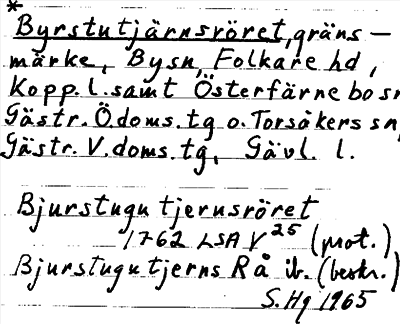 *
Byrstutjärnsröret, gräns-
märke, By sn, Folkare hd,
Kopp. l. samt Österfärnebo sn
Gästr. Ö. doms. tg o. Torsåkers sn,
Gästr. V. doms. tg, Gävl. l.
Bjurstugu tjernsröret
1762 LSA V 25 (prot.)
Bjurstugu tjerns Rå ib. (beskr.)
S. Hg 1965